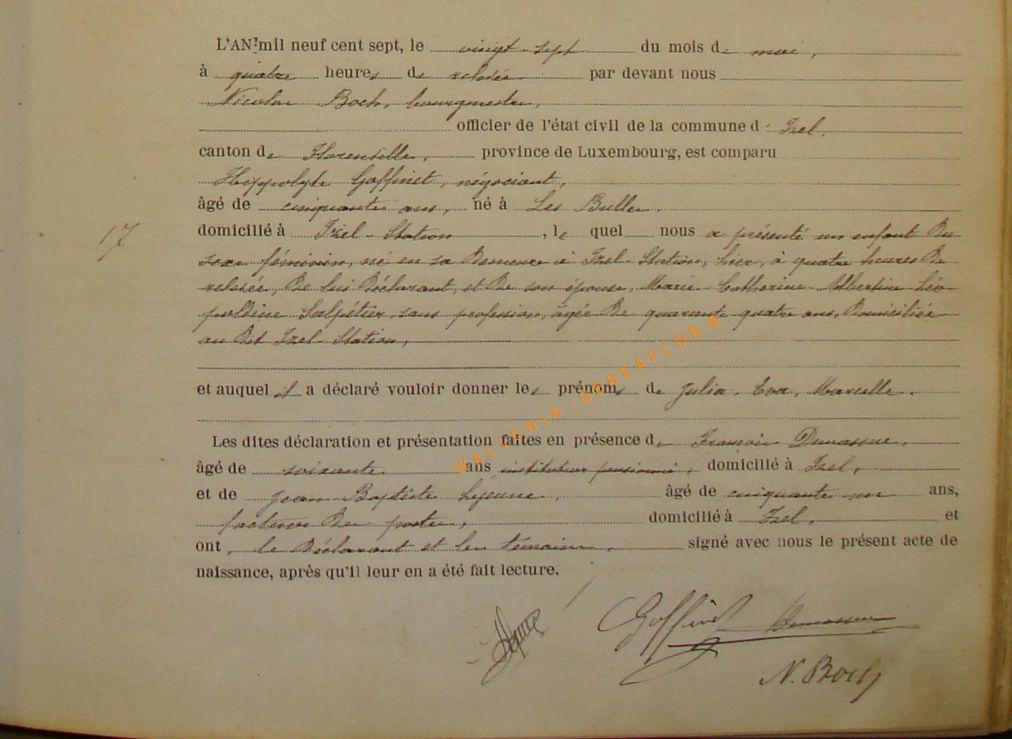 L'AN mil neuf cent sept, le vingt-sept du mois de mai,
à quatre heures de relevée par devant nous
Nicolas Boch, bourgmestre,
officier de l'état civil de la commune d' Izel.
canton de Florenville, province de Luxembourg, est comparu
Hippolyte Goffinet, négociant,
âgé de cinquante ans, né à Les Bulles.
domicilié à Izel-Station, le quel nous a présenté un enfant du
sexe féminin, né en sa demeure à Izel-Station, hier, à quatre heures de
relevée, de lui déclarant, et de son épouse, Marie-Catherine-Albertine-Léo-
poldine Salpétier, sans profession, âgée de quarante quatre ans, domiciliée
au dit Izel-Station,
17
et auquel il a déclaré vouloir donner les prénoms de Julia, Eva, Marcelle.
Les dites déclaration et présentation faites en présence de François
âgé de soixante ans instituteur pensionné, domicilié à Izel,
et de Jean-Baptiste Lejeune, âgé de cinquante-un ans,
facteur des postes, domicilié à Izel, et
ont, le déclarant et les témoins, signé avec nous le présent acte de
naissance, après qu'il leur en a été fait lecture.
Goffinet
N. Boch
WALLONIA-GENEAFLOR